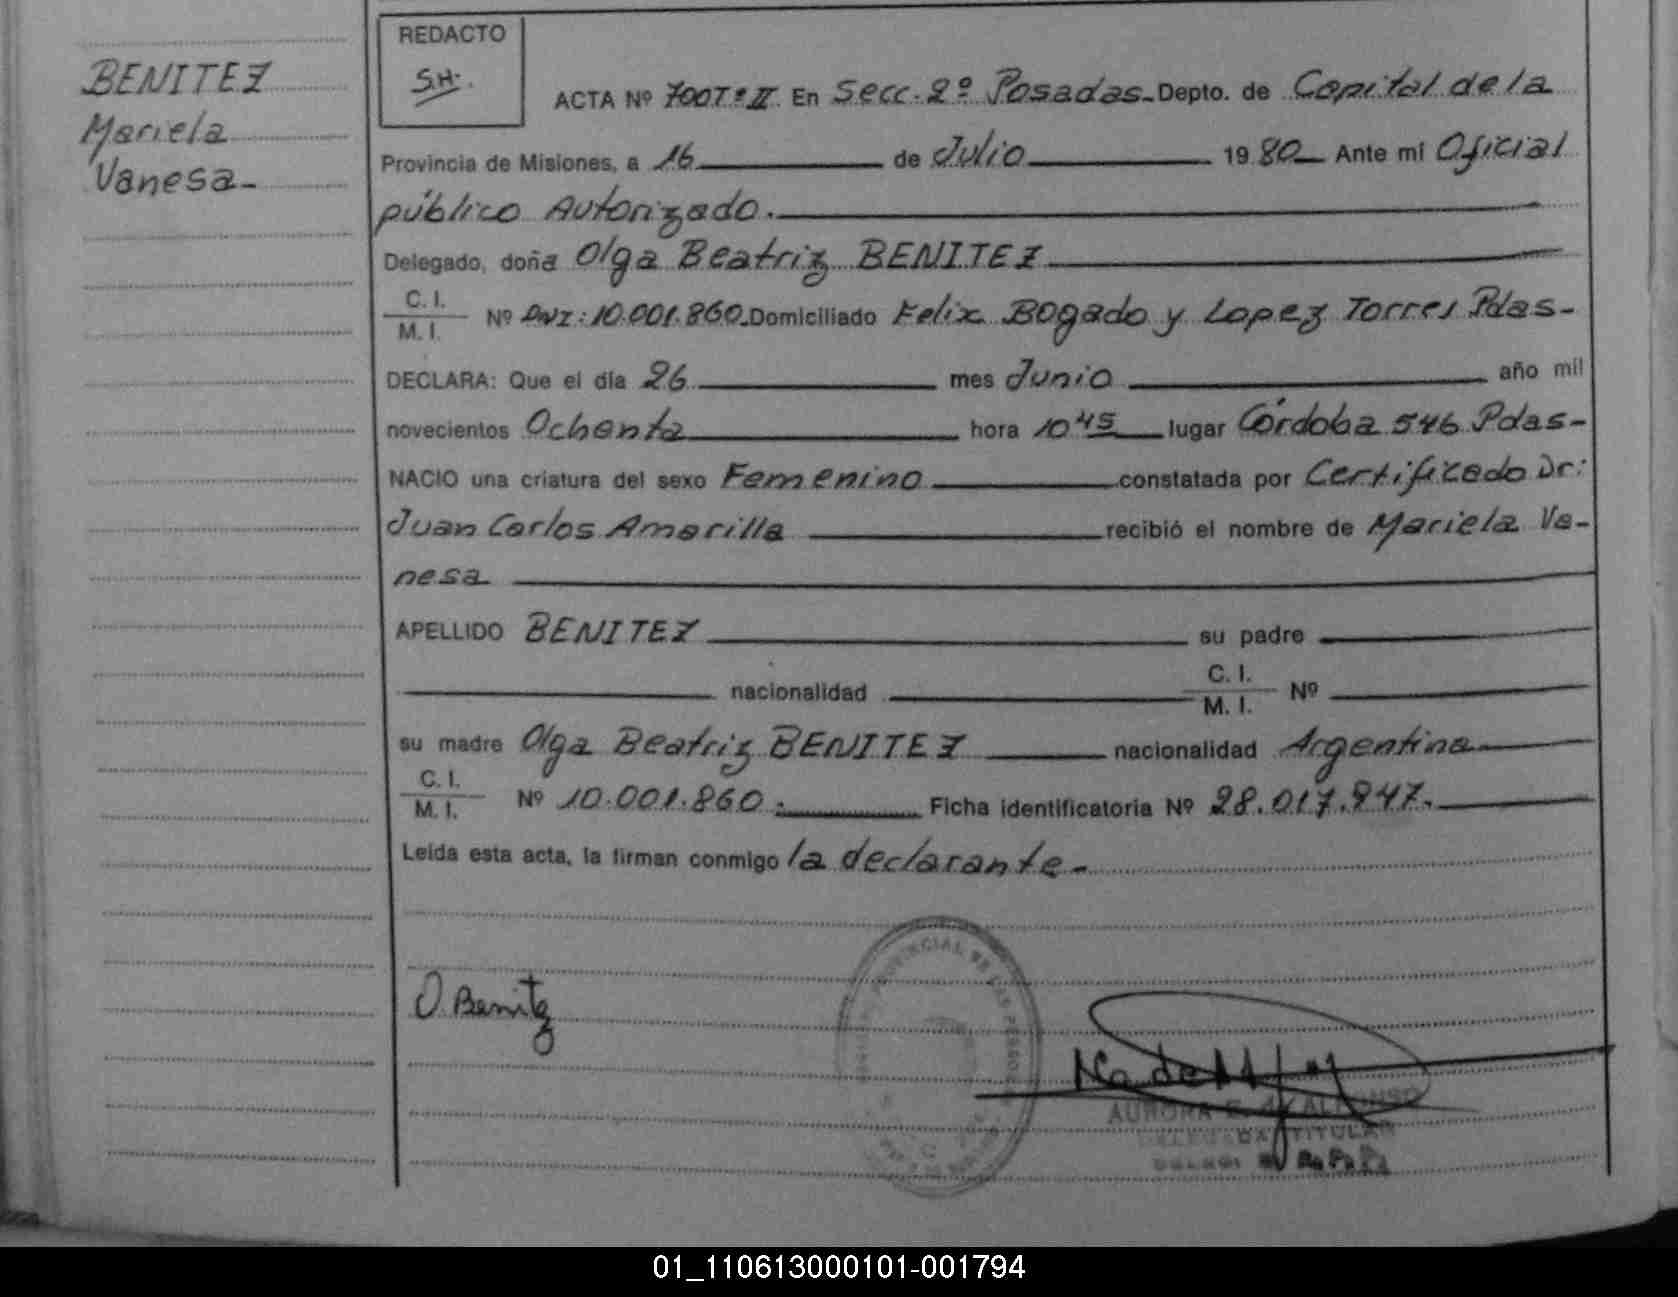 BENITEZ
Mariela
Vanesa-
REDACTO
S.H.
ACTA Nº 700Tº II En Secc. 2º Posadas- Depto. de Capital de la
Provincia de Misiones, a 16 de Julio 19 80 Ante mi Oficial
público Autorizado.
Delegado, doña Olga Beatriz BENITEZ
C. I.
M. I.
Nº DNI: 10.001.860- Domiciliado Felix Bogado y Lopez Torres Pdas-
DECLARA: Que el día 26 mes Junio año mil
novecientos Ochenta hora 10 45 lugar Córdoba 546 Pdas-
NACIO una criatura del sexo Femenino constatada por Certificado Dr:
Juan Carlos Amarilla recibió el nombre de Mariela Va-
nesa
APELLIDO BENITEZ su padre
nacionalidad C. I.
M. I. Nº
su madre Olga Beatriz BENITEZ nacionalidad Argentina
C. I.
M. I.
Nº 10.001.860. Ficha identificatoria Nº 28.017.847.
Leída esta acta, la firman conmigo la declarante-
O. Benitez
PROVINCIAL DE LAS
AURORA E. ALFONSO
TITULAR
01_110613000101-001794